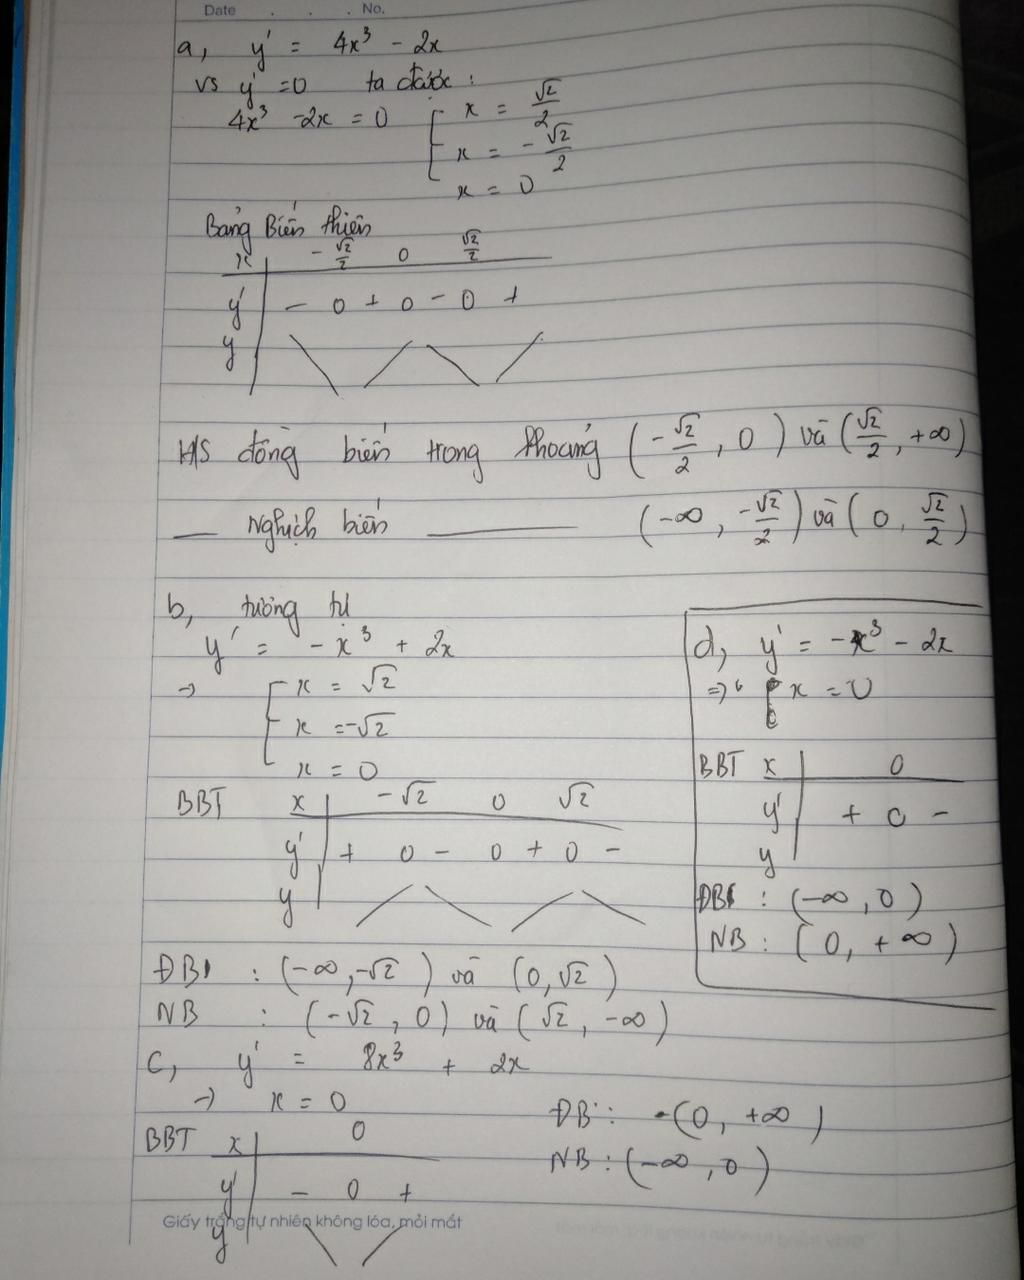 Date . . . No.
a, y' = 4x³ - 2x
vs y' = 0 ta được :
4x³ - 2x = 0 [ x = √2/2
x = -√2/2
x = 0
Bảng Biến thiên
x -√2/2 0 √2/2
y' - 0 + 0 - 0 +
y
H/S đồng biến trong khoảng (-√2/2, 0) và (√2/2, +∞)
— Nghịch biến —— (-∞, -√2/2) và (0, √2/2)
b, tương tự
y' = -x³ + 2x
→ [ x = √2
x = -√2
x = 0
BBT x -√2 0 √2
y' + 0 - 0 + 0 -
y
ĐB : (-∞, -√2) và (0, √2)
NB : (-√2, 0) và (√2, -∞)
d, y' = -x³ - 2x
=> x = 0
BBT x 0
y' + 0 -
y
ĐB : (-∞, 0)
NB : (0, +∞)
c, y' = 8x³ + 2x
→ x = 0
BBT x 0
y' - 0 +
y
ĐB : (0, +∞)
NB : (-∞, 0)
Giấy trắng tự nhiên không lóa, mỏi mắt